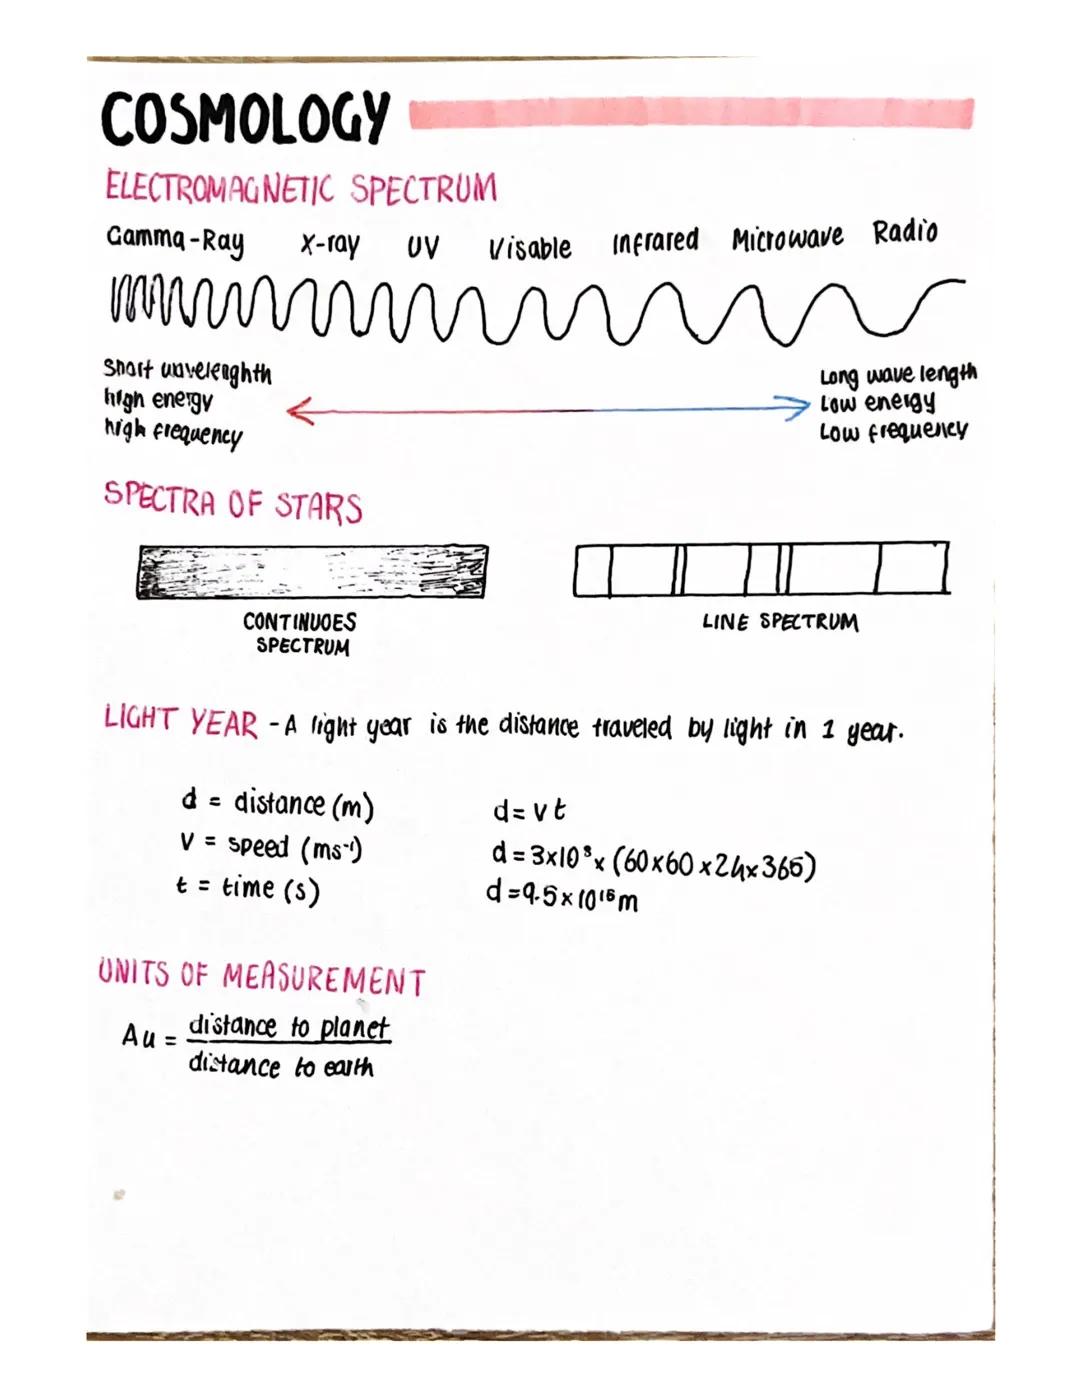 COSMOLOGY
ELECTROMAGNETIC SPECTRUM
Gamma-Ray X-ray UV Visable Infrared Microwave Radio
Short wavelenghth
high energy
high frequency
Long wave length
Low energy
Low frequency
SPECTRA OF STARS
CONTINUOES
SPECTRUM
LINE SPECTRUM
LIGHT YEAR - A light year is the distance traveled by light in 1 year.
d = distance (m)
v = speed (ms⁻¹)
t = time (s)
d = vt
d = 3x10⁸x (60x60x24x365)
d = 9.5x10¹⁵m
UNITS OF MEASUREMENT
Au = distance to planet
distance to earth